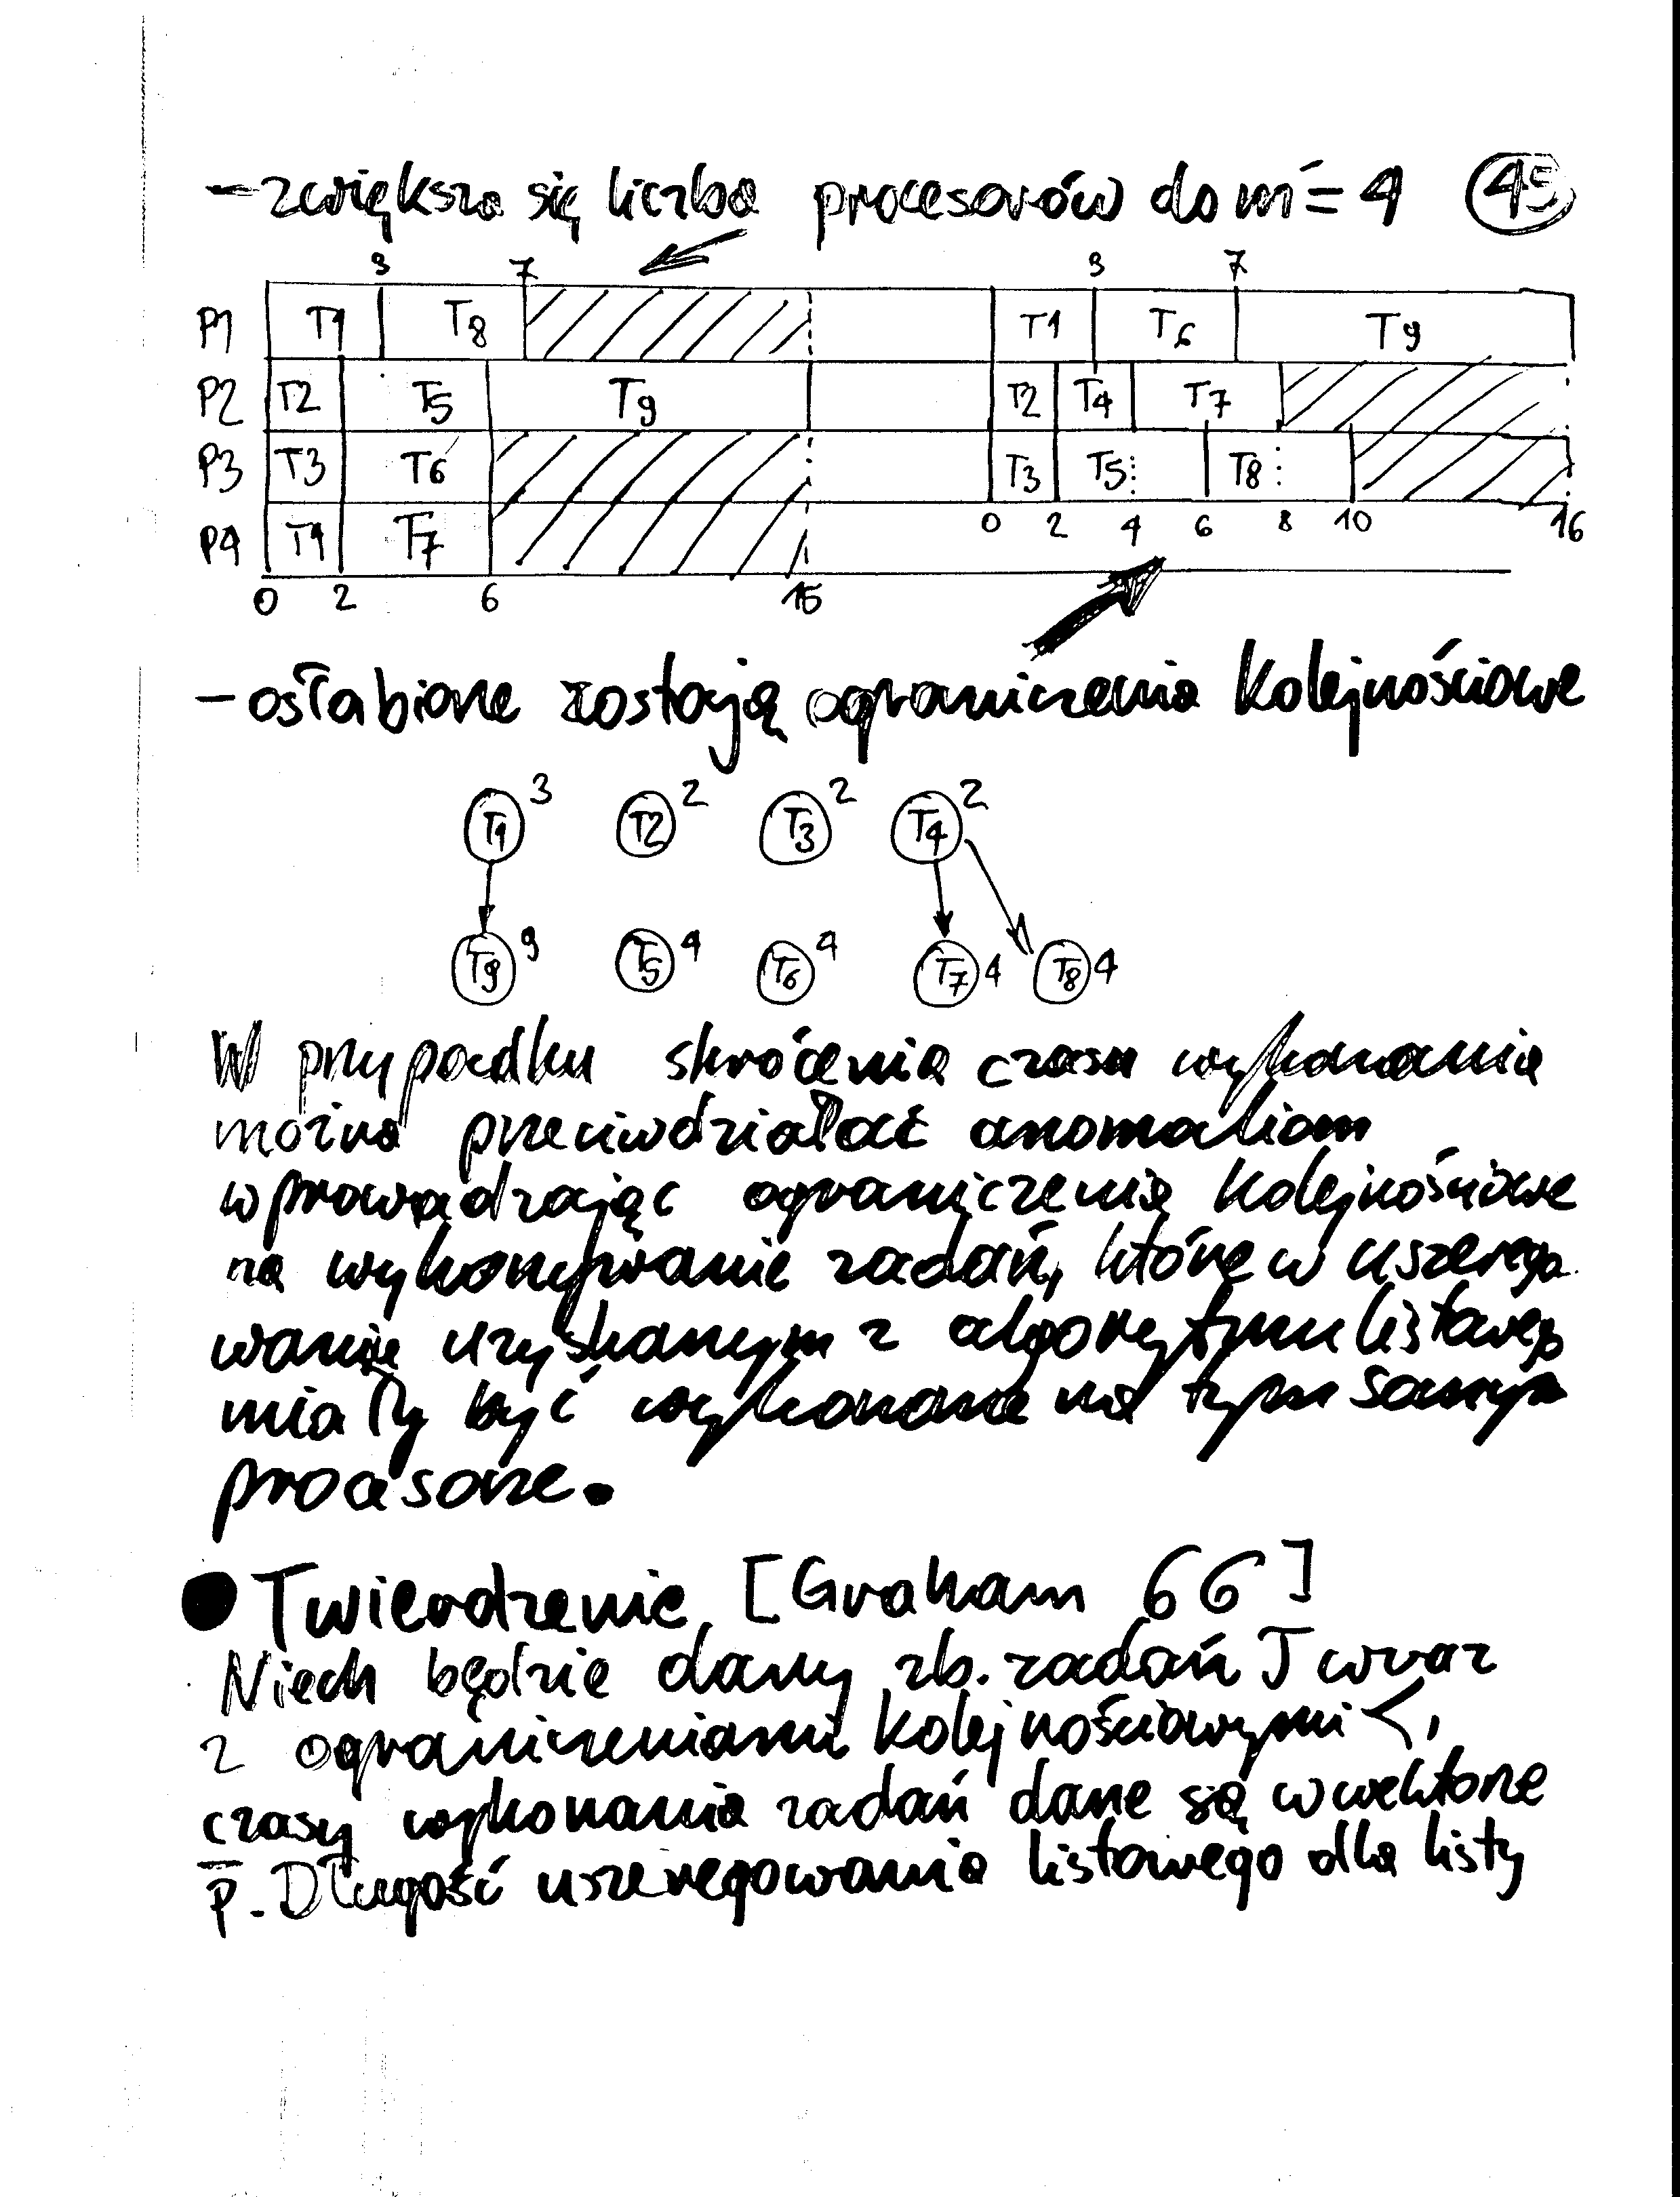 - zwiększa się liczba procesorów do m' = 4 (45)
3 7 3 7
P1 T1 T8 T1 T6 T9
P2 T2 T5 T9 T2 T4 T7
P3 T3 T6 T3 T5 T8
0 2 4 6 8 10 16
P4 T4 T7
0 2 6 15
- osłabione zostają ograniczenia kolejnościowe
T1 3 T2 2 T3 2 T4 2
T9 9 T5 4 T6 4 T7 4 T8 4
W przypadku skrócenia czasu wykonania
można przeciwdziałać anomaliom
wprowadzając ograniczenia kolejnościowe
na wykonywanie zadań, które w uszerego-
waniu uzyskanym z algorytmu listowego
miały być wykonane na tym samym
procesorze.
● Twierdzenie [Graham 66]
Niech będzie dany zb. zadań T wraz
z ograniczeniami kolejnościowymi <,
czasy wykonania zadań dane są w wektorze
p̄. Długość uszeregowania listowego dla listy